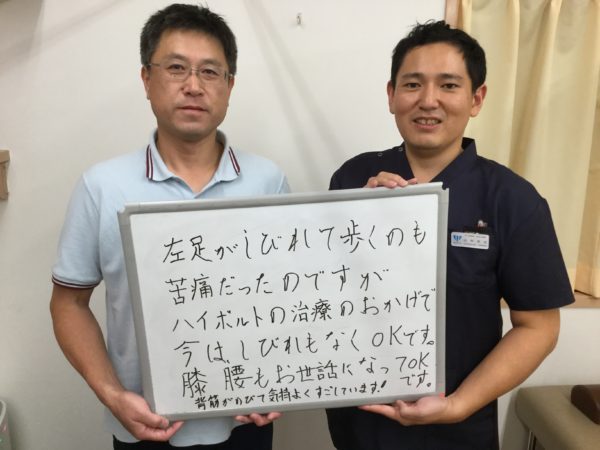 左足がしびれて歩くのも
苦痛だったのですが
ハイボルトの治療のおかげで
今は、しびれもなくOKです。
膝 腰もお世話になってOKです。
背筋がのびて気持よくすごしています!